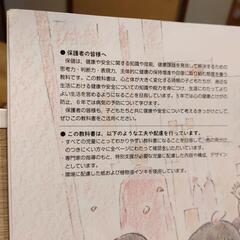 ● 保護者の皆様へ
保健は、健康や安全に関する知識や技能、健康課題を発見して解決するための
思考力・判断力・表現力、主体的に健康の保持増進や回復に取り組む態度を養う
教科です。この教科書は、子どもたちが
生活における健康や安全についての知識や能力を身につけ、生涯にわたってより
よい生活を営めるようになることを目指しています。5年ではけが
の防止、6年では病気の予防について
保護者の皆様も、子どもたちと共に健康や安全について考えるきっかけとして、
ぜひこの教科書をご活用ください。
● この教科書は、以下のような工夫や配慮を行っています。
・すべての児童にとってわかりやすく学べることを目指して、色の見分けが
のつきにくい方々に全ページにわたって確認をいただいています。
・専門家の指導のもと、特別支援が必要な児童に配慮した内容や構成、デザイン
としています。
・環境に配慮した紙および植物油インキを使用しています。